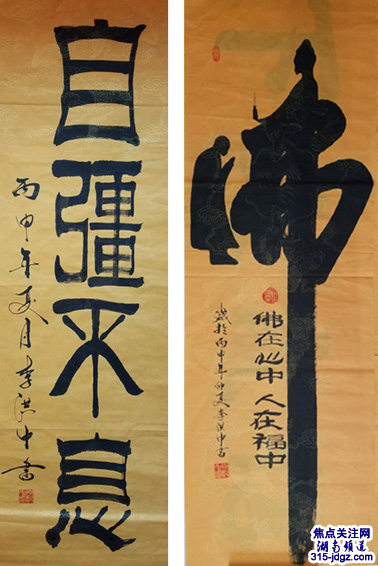 自彊不息
丙申年夏月李洪中书
佛
佛在心中人在福中
戏於丙申年仲夏李洪中书
焦点关注网
湖南频道
315-jdgz.com